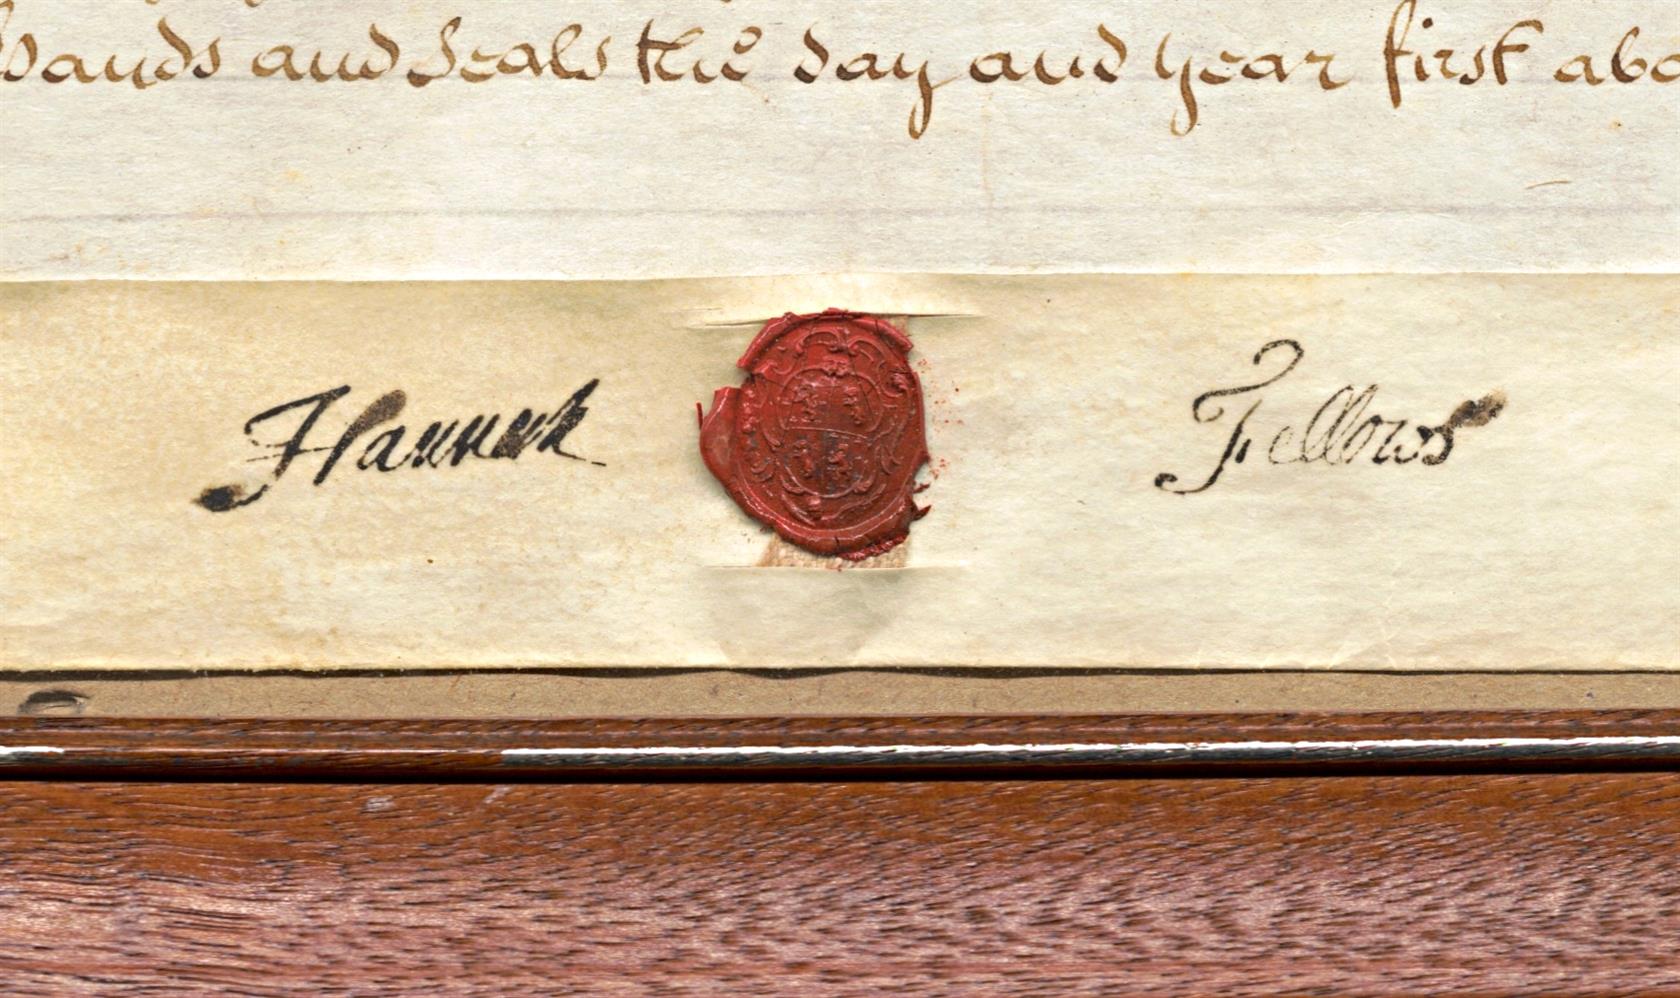 Hands and Seals the day and year first abo
Hannah Fellows